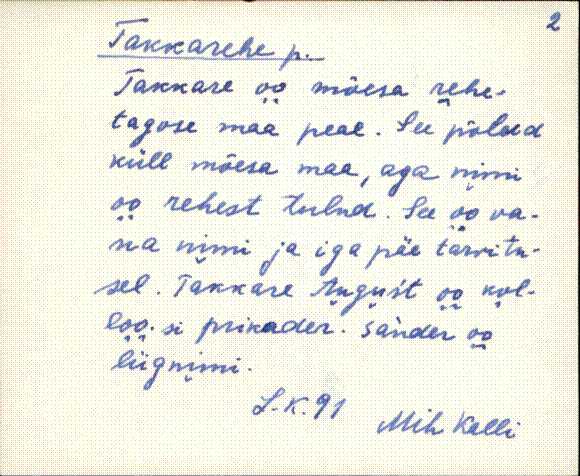 2
Takkarehe p.
Takkare oo mõesa rehe-
tagose maa peal. See põlnd
küll mõesa maa, aga nimi
oo rehest tulnd. See oo va-
na nimi ja iga päe tarvitu-
sel. Takkare August oo kol-
loo. si prikader. Sander oo
liignimi.
L-K. 91
Mih Kalli